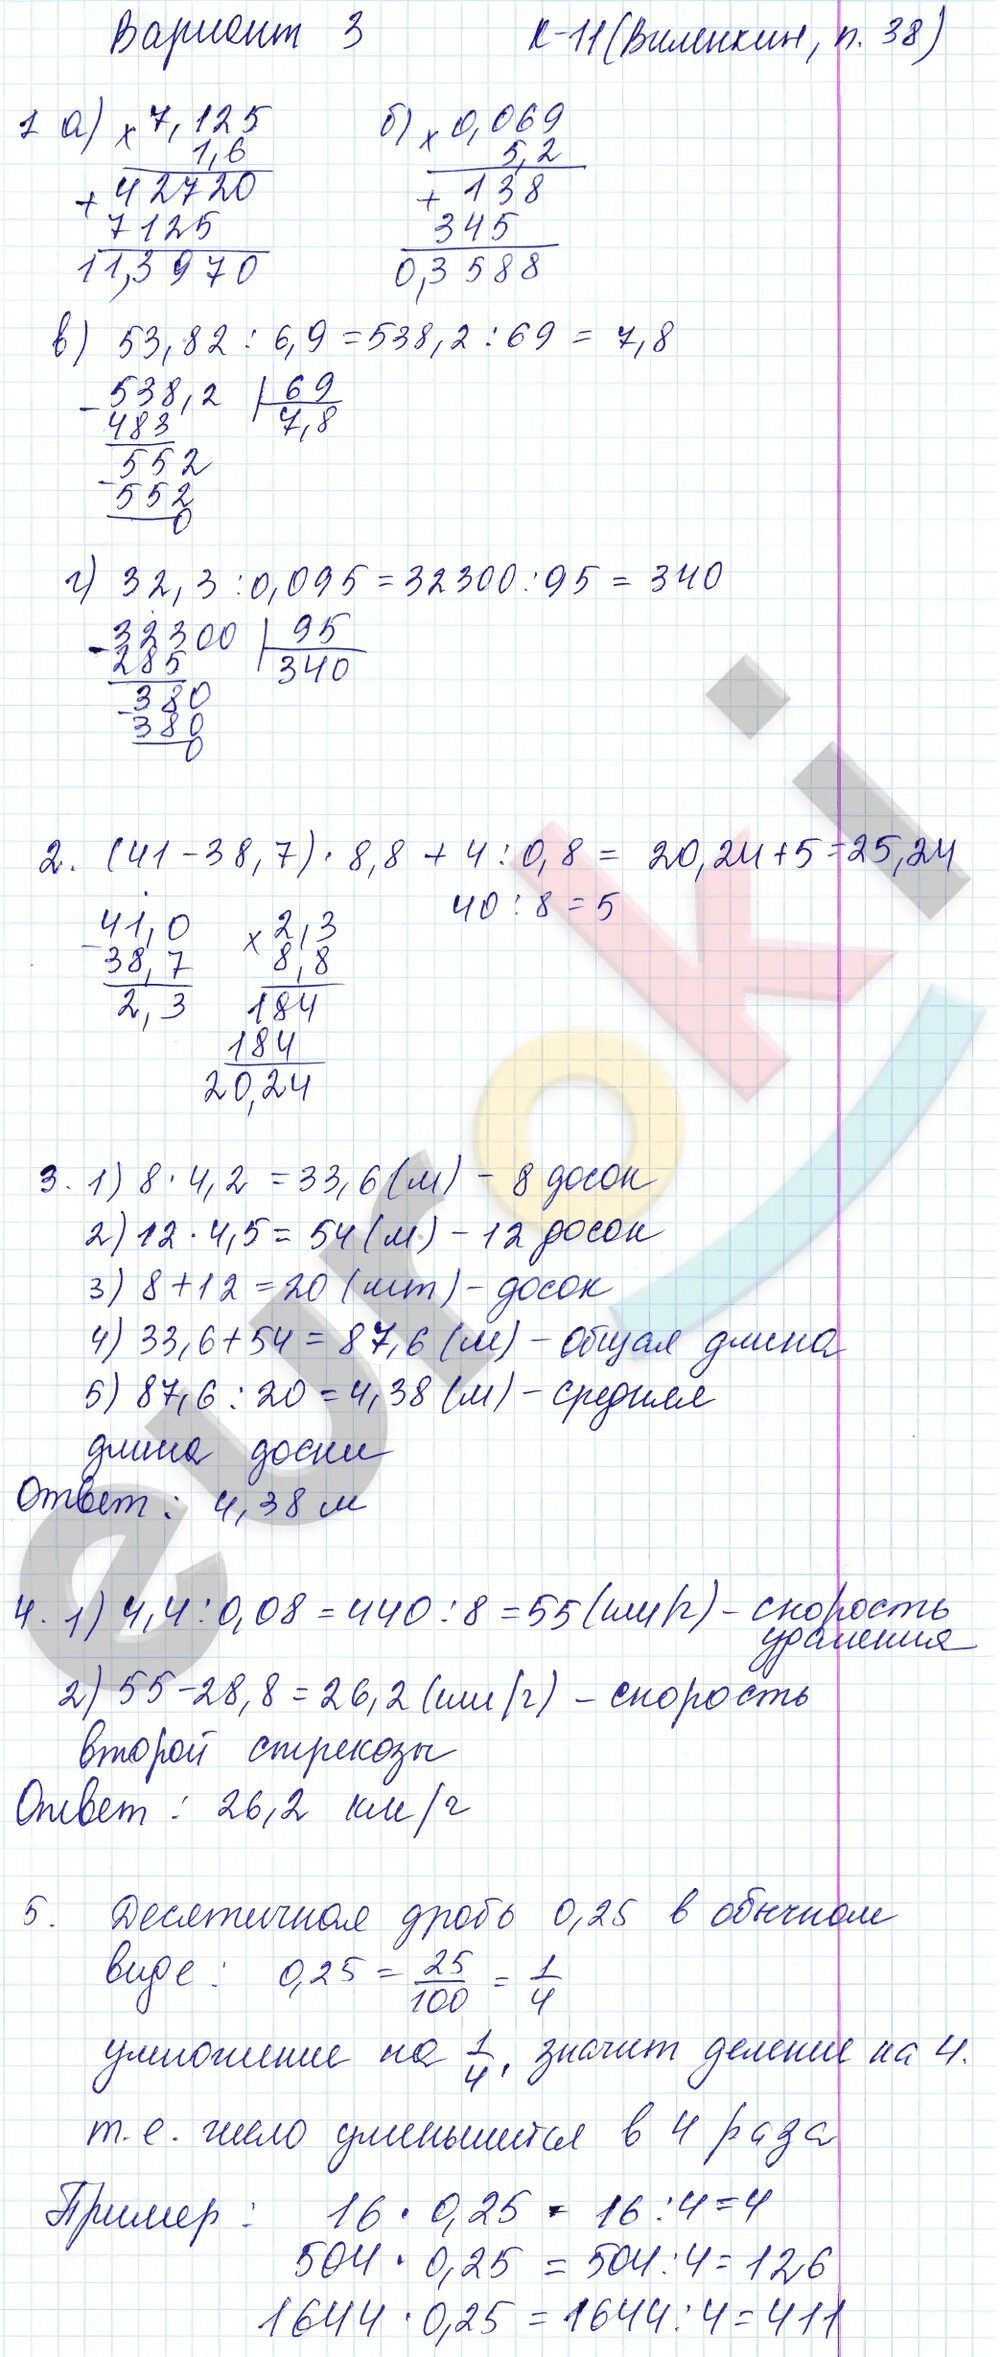 Вариант 3 К-11 (Виленкин, п. 38)
1 а) × 7,125 б) × 0,069
1,6 5,2
+ 42720 + 138
7125 345
11,3970 0,3588
в) 53,82 : 6,9 = 538,2 : 69 = 7,8
- 538,2 | 69
483 7,8
- 552
552
0
г) 32,3 : 0,095 = 32300 : 95 = 340
- 32300 | 95
285 340
- 380
380
0
2. (41 - 38,7) · 8,8 + 4 : 0,8 = 20,24 + 5 = 25,24
40 : 8 = 5
- 41,0 × 2,3
38,7 8,8
2,3 184
184
20,24
3. 1) 8 · 4,2 = 33,6 (м) - 8 досок
2) 12 · 4,5 = 54 (м) - 12 досок
3) 8 + 12 = 20 (шт) - досок
4) 33,6 + 54 = 87,6 (м) - общая длина
5) 87,6 : 20 = 4,38 (м) - средняя
длина доски
Ответ : 4,38 м
4. 1) 4,4 : 0,08 = 440 : 8 = 55 (км/ч) - скорость
удаления
2) 55 - 28,8 = 26,2 (км/ч) - скорость
второй стрекозы
Ответ : 26,2 км/ч
5. Десятичная дробь 0,25 в обычном
виде : 0,25 = 25/100 = 1/4
умножение на 1/4, значит деление на 4.
т. е. число уменьшится в 4 раза
Пример : 16 · 0,25 - 16 : 4 = 4
504 · 0,25 = 504 : 4 = 126
1644 · 0,25 = 1644 : 4 = 411
euroki